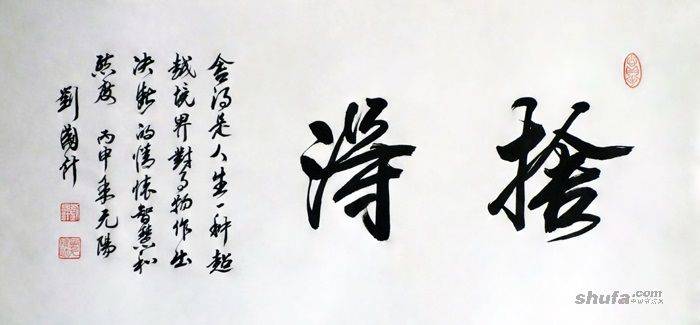 捨得
舍得是人生一种超
越境界對事物作出
决断的情懷智慧和
態度 丙申年元陽
劉國
shufa.com